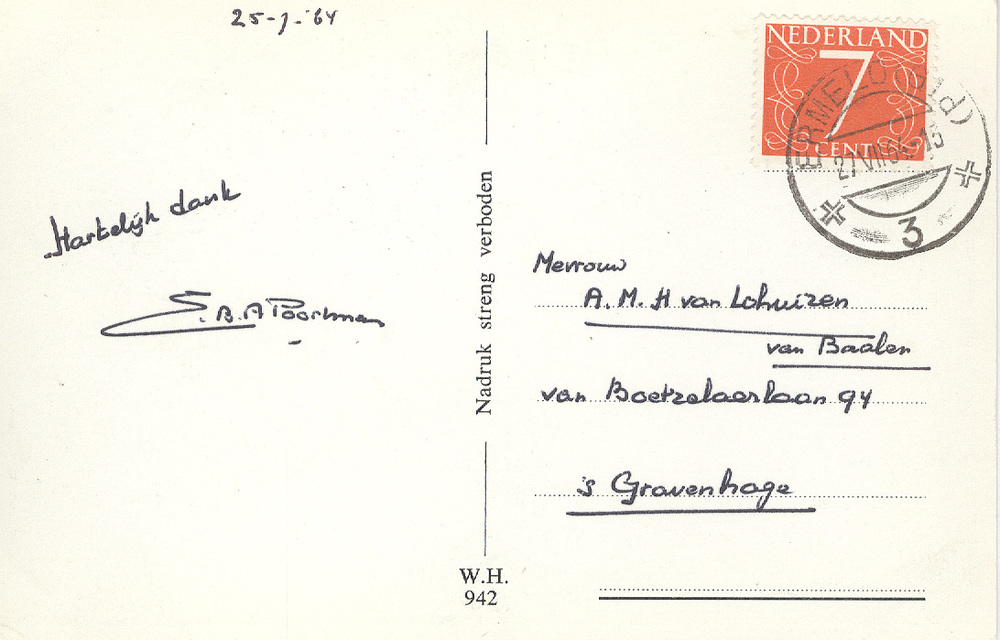 25-7-'64
Hartelijk dank
E.B.A Poortman
Nadruk streng verboden
W.H.
942
NEDERLAND
7
CENT
ERMELO (Gld)
27 VII 64-15
3
Mevrouw
A.M.H van Lohuizen
van Baalen
van Boetzelaerlaan 94
's Gravenhage